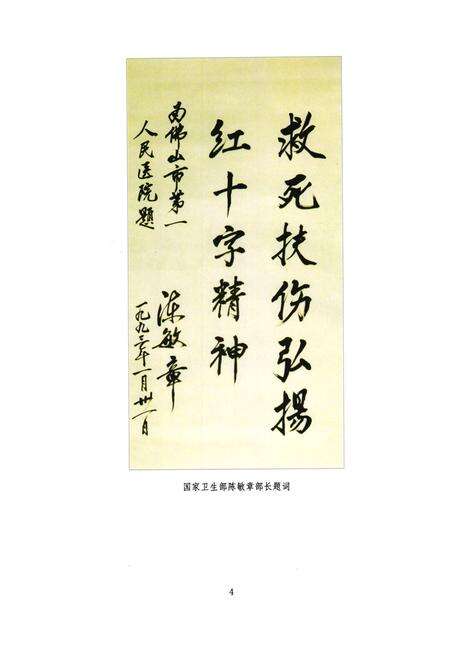 救死扶伤弘揚
红十字精神
为佛山市第一
人民医院题
陈敏章
一九九三年一月卅一日
国家卫生部陈敏章部长题词
4